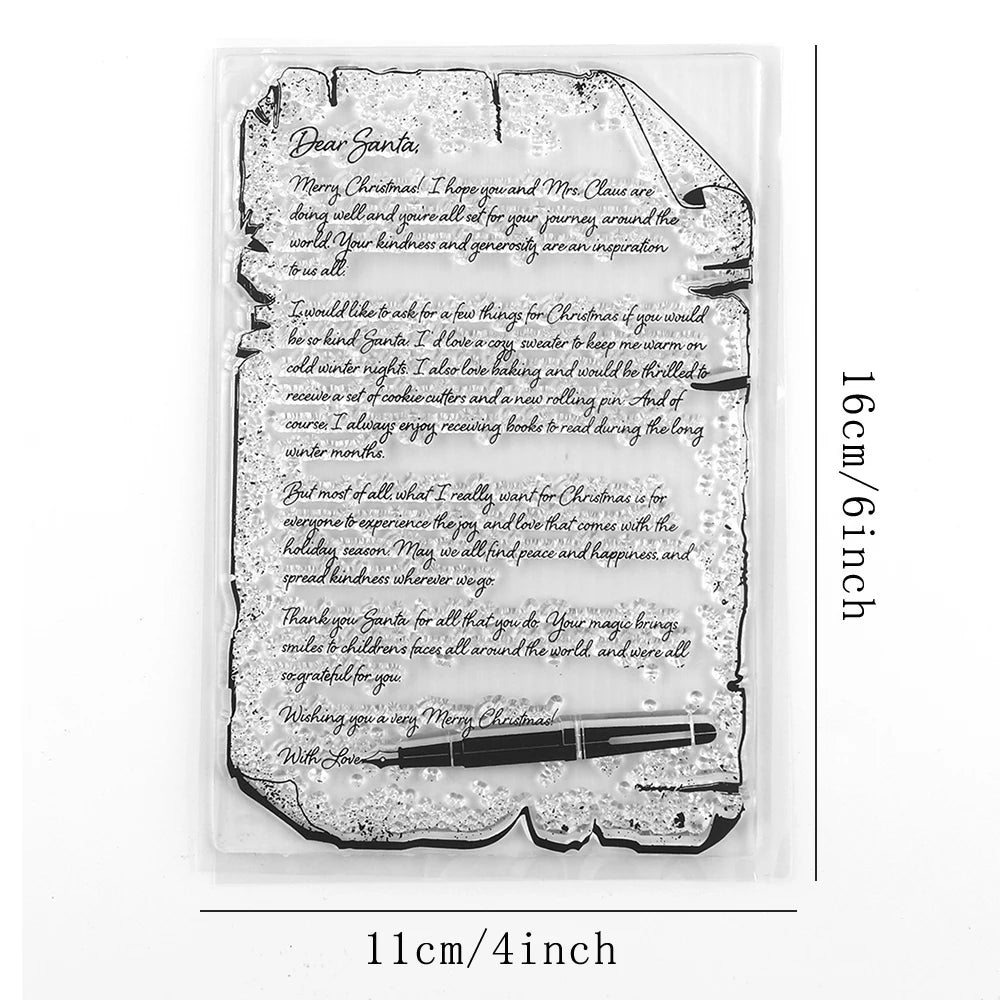 Dear Santa,
Merry Christmas! I hope you and Mrs. Claus are
doing well and you're all set for your journey around the
world. Your kindness and generosity are an inspiration
to us all.
I would like to ask for a few things for Christmas if you would
be so kind Santa. I'd love a cozy sweater to keep me warm on
cold winter nights. I also love baking and would be thrilled to
receive a set of cookie cutters and a new rolling pin. And of
course, I always enjoy receiving books to read during the long
winter months.
But most of all, what I really want for Christmas is for
everyone to experience the joy and love that comes with the
holiday season. May we all find peace and happiness, and
spread kindness wherever we go.
Thank you Santa for all that you do. Your magic brings
smiles to children's faces all around the world, and we're all
so grateful for you.
Wishing you a very Merry Christmas!
With Love
16cm/6inch
11cm/4inch